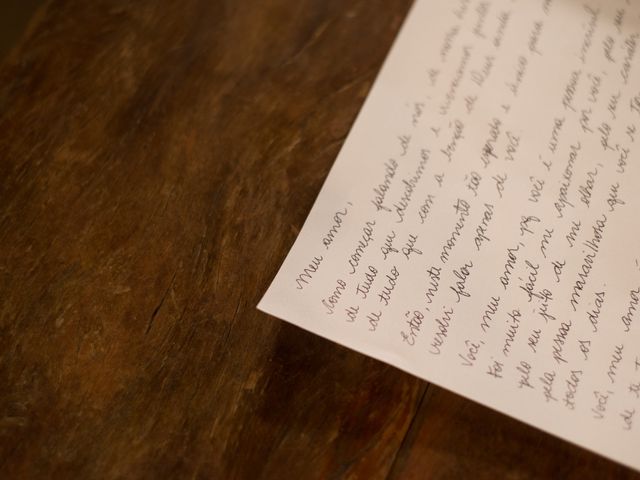 Meu amor,
Como começar falando de nós, de nossa
de tudo que descobrimos e vivenciamos juntos
de tudo que com a benção de Deus ainda
Então, neste momento tão esperado e único para
resolvi falar apenas de você.
Você, meu amor, pq você é uma pessoa incrível
Foi muito fácil me apaixonar por você, pelo seu
pelo seu jeito de me olhar, pelo seu caráter
pela pessoa maravilhosa que você se
todos os dias.
Você, meu amor
de te